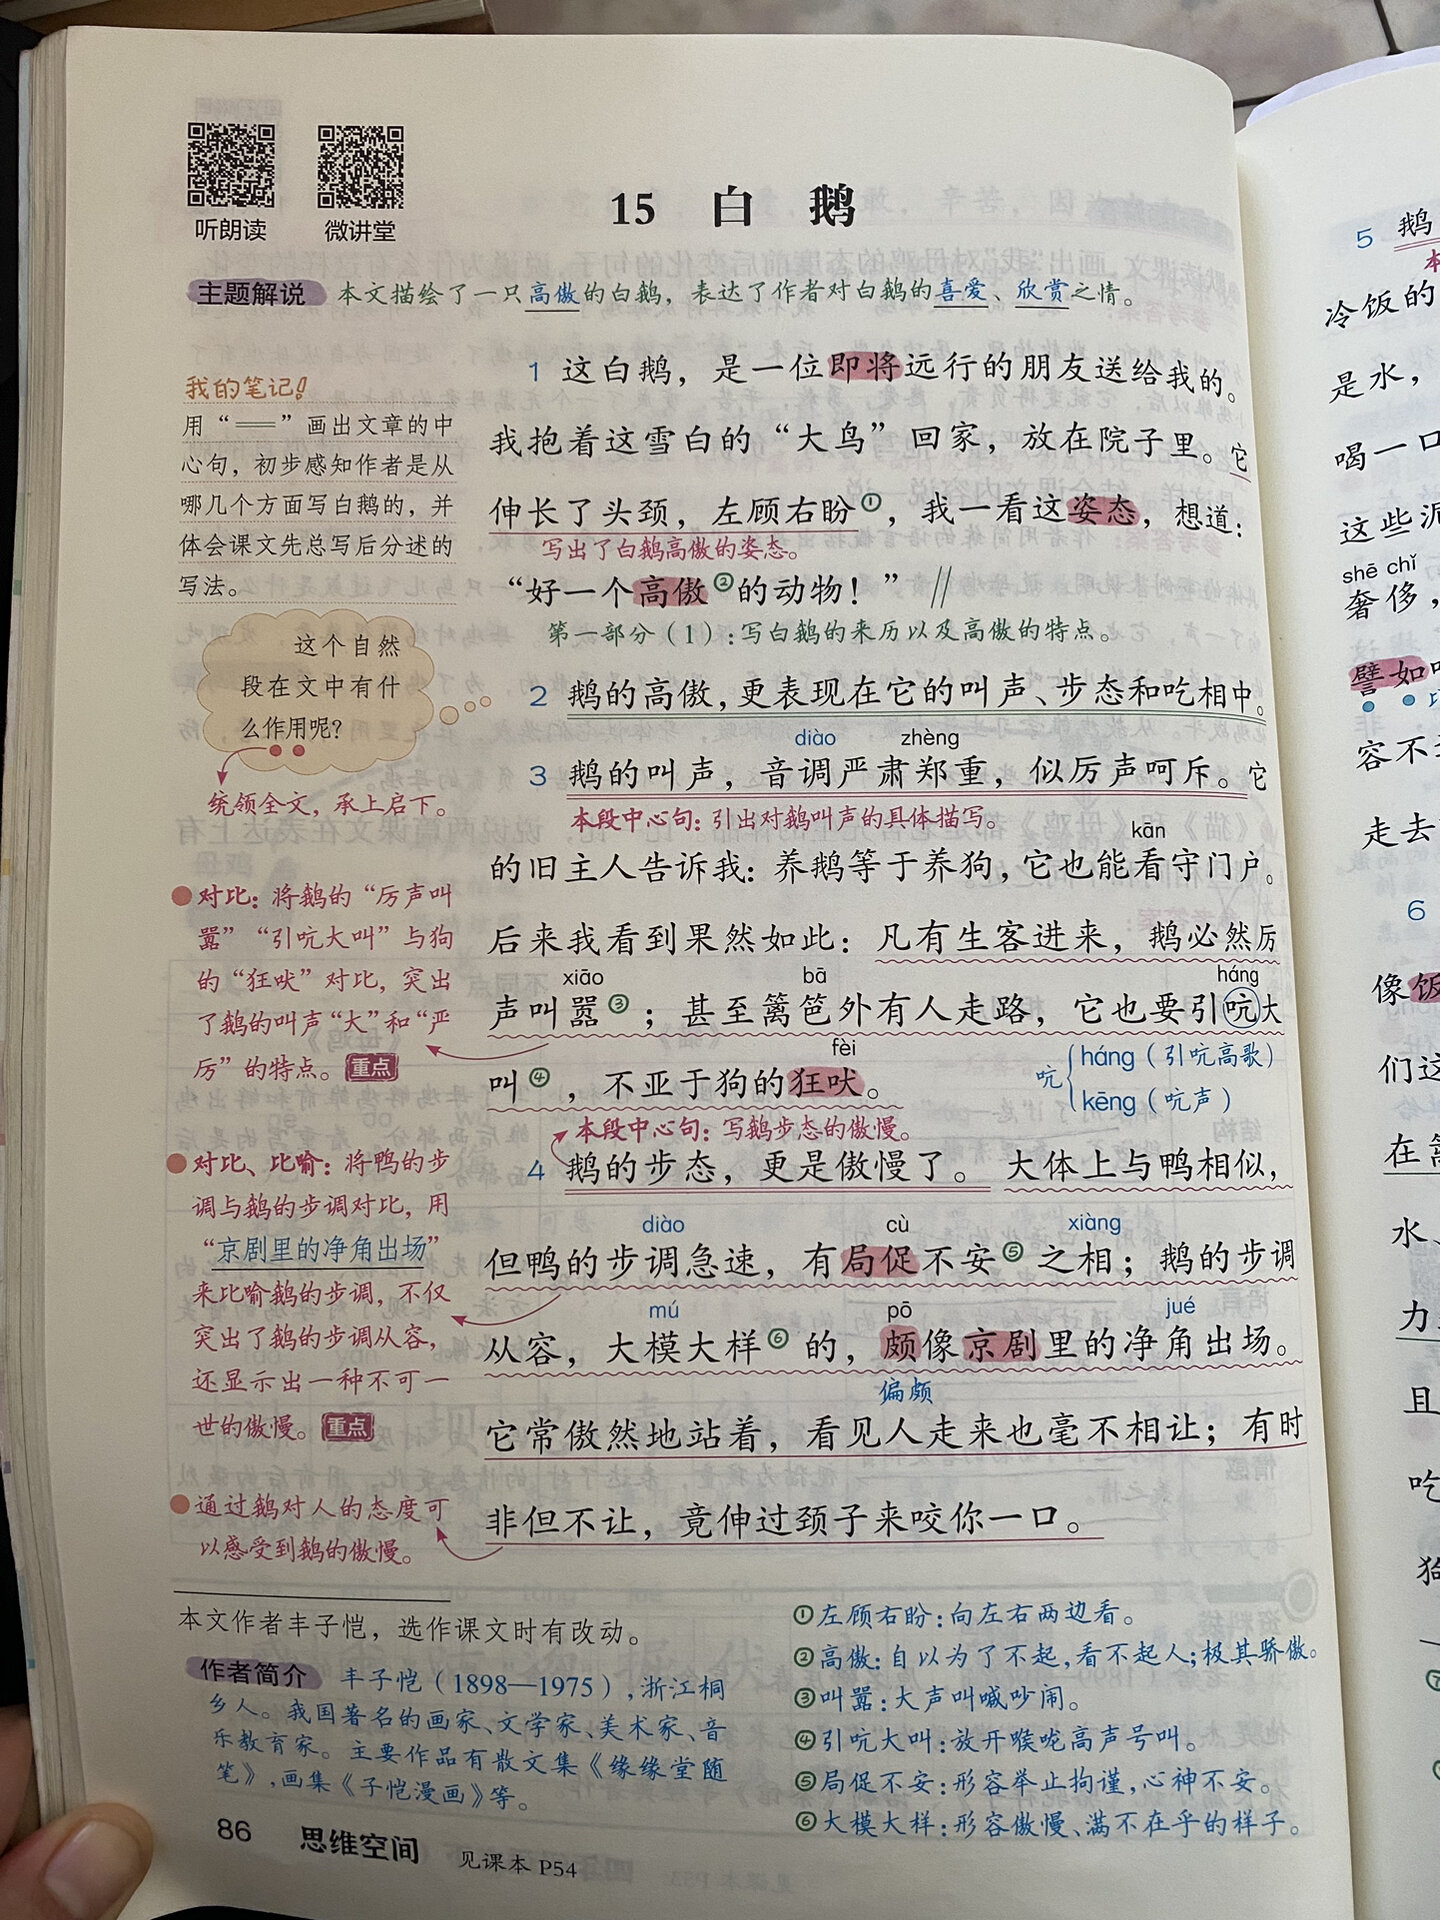 听朗读 微讲堂
15 白 鹅
主题解说 本文描绘了一只高傲的白鹅，表达了作者对白鹅的喜爱、欣赏之情。
我的笔记！
用“══”画出文章的中
心句，初步感知作者是从
哪几个方面写白鹅的，并
体会课文先总写后分述的
写法。
这个自然
段在文中有什
么作用呢？
统领全文，承上启下。
对比：将鹅的“厉声叫
嚣”“引吭大叫”与狗
的“狂吠”对比，突出
了鹅的叫声“大”和“严
厉”的特点。重点
对比、比喻：将鸭的步
调与鹅的步调对比，用
“京剧里的净角出场”
来比喻鹅的步调，不仅
突出了鹅的步调从容，
还显示出一种不可一
世的傲慢。重点
通过鹅对人的态度可
以感受到鹅的傲慢。
1 这白鹅，是一位即将远行的朋友送给我的。
我抱着这雪白的“大鸟”回家，放在院子里。它
伸长了头颈，左顾右盼①，我一看这姿态，想道：
写出了白鹅高傲的姿态。
“好一个高傲②的动物！”∥
第一部分（1）：写白鹅的来历以及高傲的特点。
2 鹅的高傲，更表现在它的叫声、步态和吃相中。
diào zhèng
3 鹅的叫声，音调严肃郑重，似厉声呵斥。它
本段中心句：引出对鹅叫声的具体描写。
kān
的旧主人告诉我：养鹅等于养狗，它也能看守门户。
后来我看到果然如此：凡有生客进来，鹅必然厉
xiāo bā háng
声叫嚣③；甚至篱笆外有人走路，它也要引吭大
fèi
叫④，不亚于狗的狂吠。
吭 háng（引吭高歌）
kēng（吭声）
本段中心句：写鹅步态的傲慢。
4 鹅的步态，更是傲慢了。大体上与鸭相似，
diào cù xiàng
但鸭的步调急速，有局促不安⑤之相；鹅的步调
mú pō jué
从容，大模大样⑥的，颇像京剧里的净角出场。
偏颇
它常傲然地站着，看见人走来也毫不相让；有时
非但不让，竟伸过颈子来咬你一口。
本文作者丰子恺，选作课文时有改动。
作者简介 丰子恺（1898—1975），浙江桐
乡人。我国著名的画家、文学家、美术家、音
乐教育家。主要作品有散文集《缘缘堂随
笔》，画集《子恺漫画》等。
①左顾右盼：向左右两边看。
②高傲：自以为了不起，看不起人；极其骄傲。
③叫嚣：大声叫喊吵闹。
④引吭大叫：放开喉咙高声号叫。
⑤局促不安：形容举止拘谨，心神不安。
⑥大模大样：形容傲慢、满不在乎的样子。
86 思维空间 见课本 P54
5 鹅
冷饭的
是水，
喝一口
这些泥
shē chǐ
奢侈，
譬如
容不
走去
6
像饭
们这
在篱
水、
力
且
吃
狗